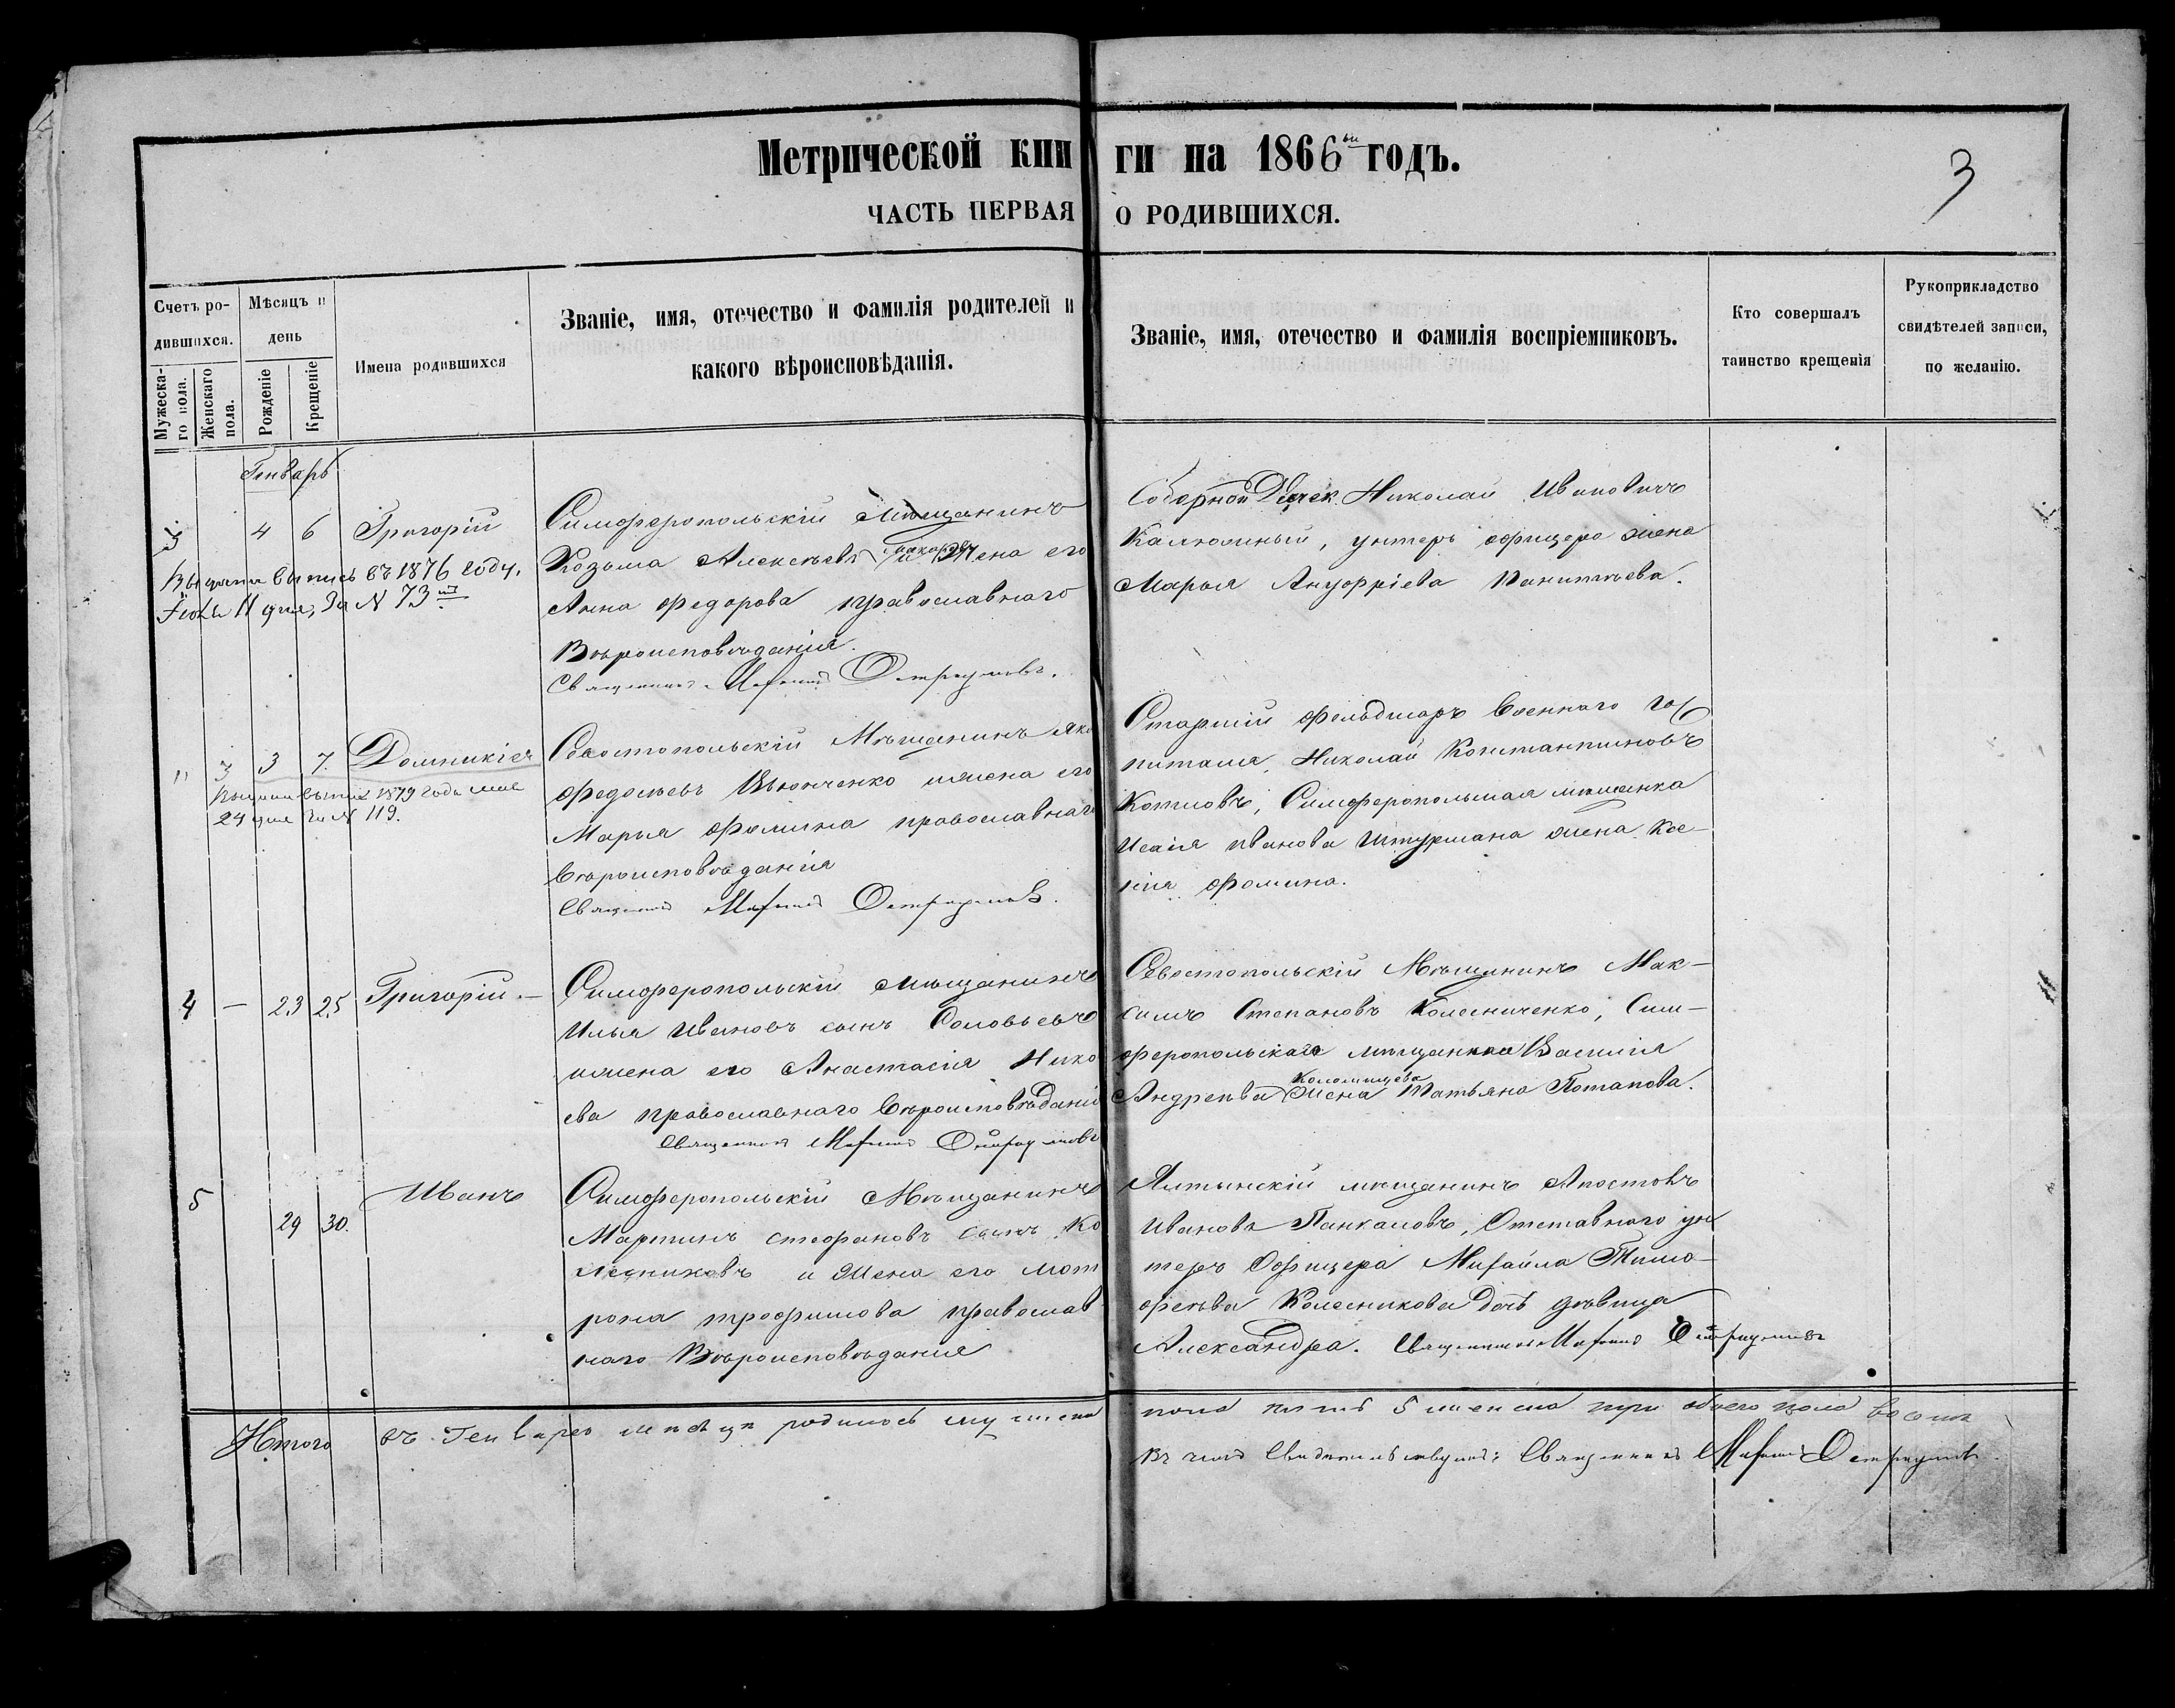 Метрической кни ги на 1866ый годъ.
3
ЧАСТЬ ПЕРВАЯ О РОДИВШИХСЯ.
Счетъ ро-
дившихся.
Мужеска-
го пола.
Женскаго
пола.
Мѣсяцъ и
день
Рожденіе
Крещеніе
Имена родившихся
Званіе, имя, отечество и фамилія родителей и
какого вѣроисповѣданія.
Званіе, имя, отечество и фамилія воспріемниковъ.
Кто совершалъ
таинство крещенія
Рукоприкладство
свидѣтелей записи,
по желанію.
Генварь
3 4 6 Григорій
Выдана выпись въ 1876 году,
11 дня, За N 73
Симферопольскій Мѣщанинъ
Козьма Алексѣевъ и Жена его
Анна Федорова православнаго
Вѣроисповѣданія.
Священникъ
Соборной Николай Ивановичъ
унтеръ офицера жена
Марья Ануфріева
" 3 3 7. Домникія
выпись 1879 года мая
24 дня За N 119.
Севостопольскій Мѣщанинъ Яко
Федосѣевъ Вьюнченко и жена его
Марья Фомина православнаго
Вѣроисповѣданія
Священникъ
Старшій фельдшаръ Военнаго го
питаля, Николай Константиновъ
Котловъ, Симферопольская мѣщанка
Иванова Штурмана жена Ксе-
нія Фомина.
4 — 23 25 Григорій. —
Симферопольскій мѣщанинъ
Илья Ивановъ сынъ Соловьевъ
и жена его Анастасія Нико
ева православнаго Вѣроисповѣдані
Священникъ
Севостопольскій Мѣщанинъ Мак-
симъ Степановъ Колесниченко, Сим-
феропольскаго мѣщанина Василія
Андреева Жена Татьяна Потапова.
5 29 30. Иванъ
Симферопольскій Мѣщанинъ
Мартинъ Стефановъ сынъ Ко
лесниковъ и Жена его Мот
рона трофимова православ
наго Вѣроисповѣданія
Ялтынскій мѣщанинъ Апостолъ
Ивановъ Отставнаго ун
теръ Офицера Михайла Тимо-
феева Колесникова дочь дѣвица
Александра. Священникъ
Итого въ Генварѣ мѣсяцѣ родилось мужеска пола пять 5 женска три обоего пола восемь
Въ чемъ Священникъ